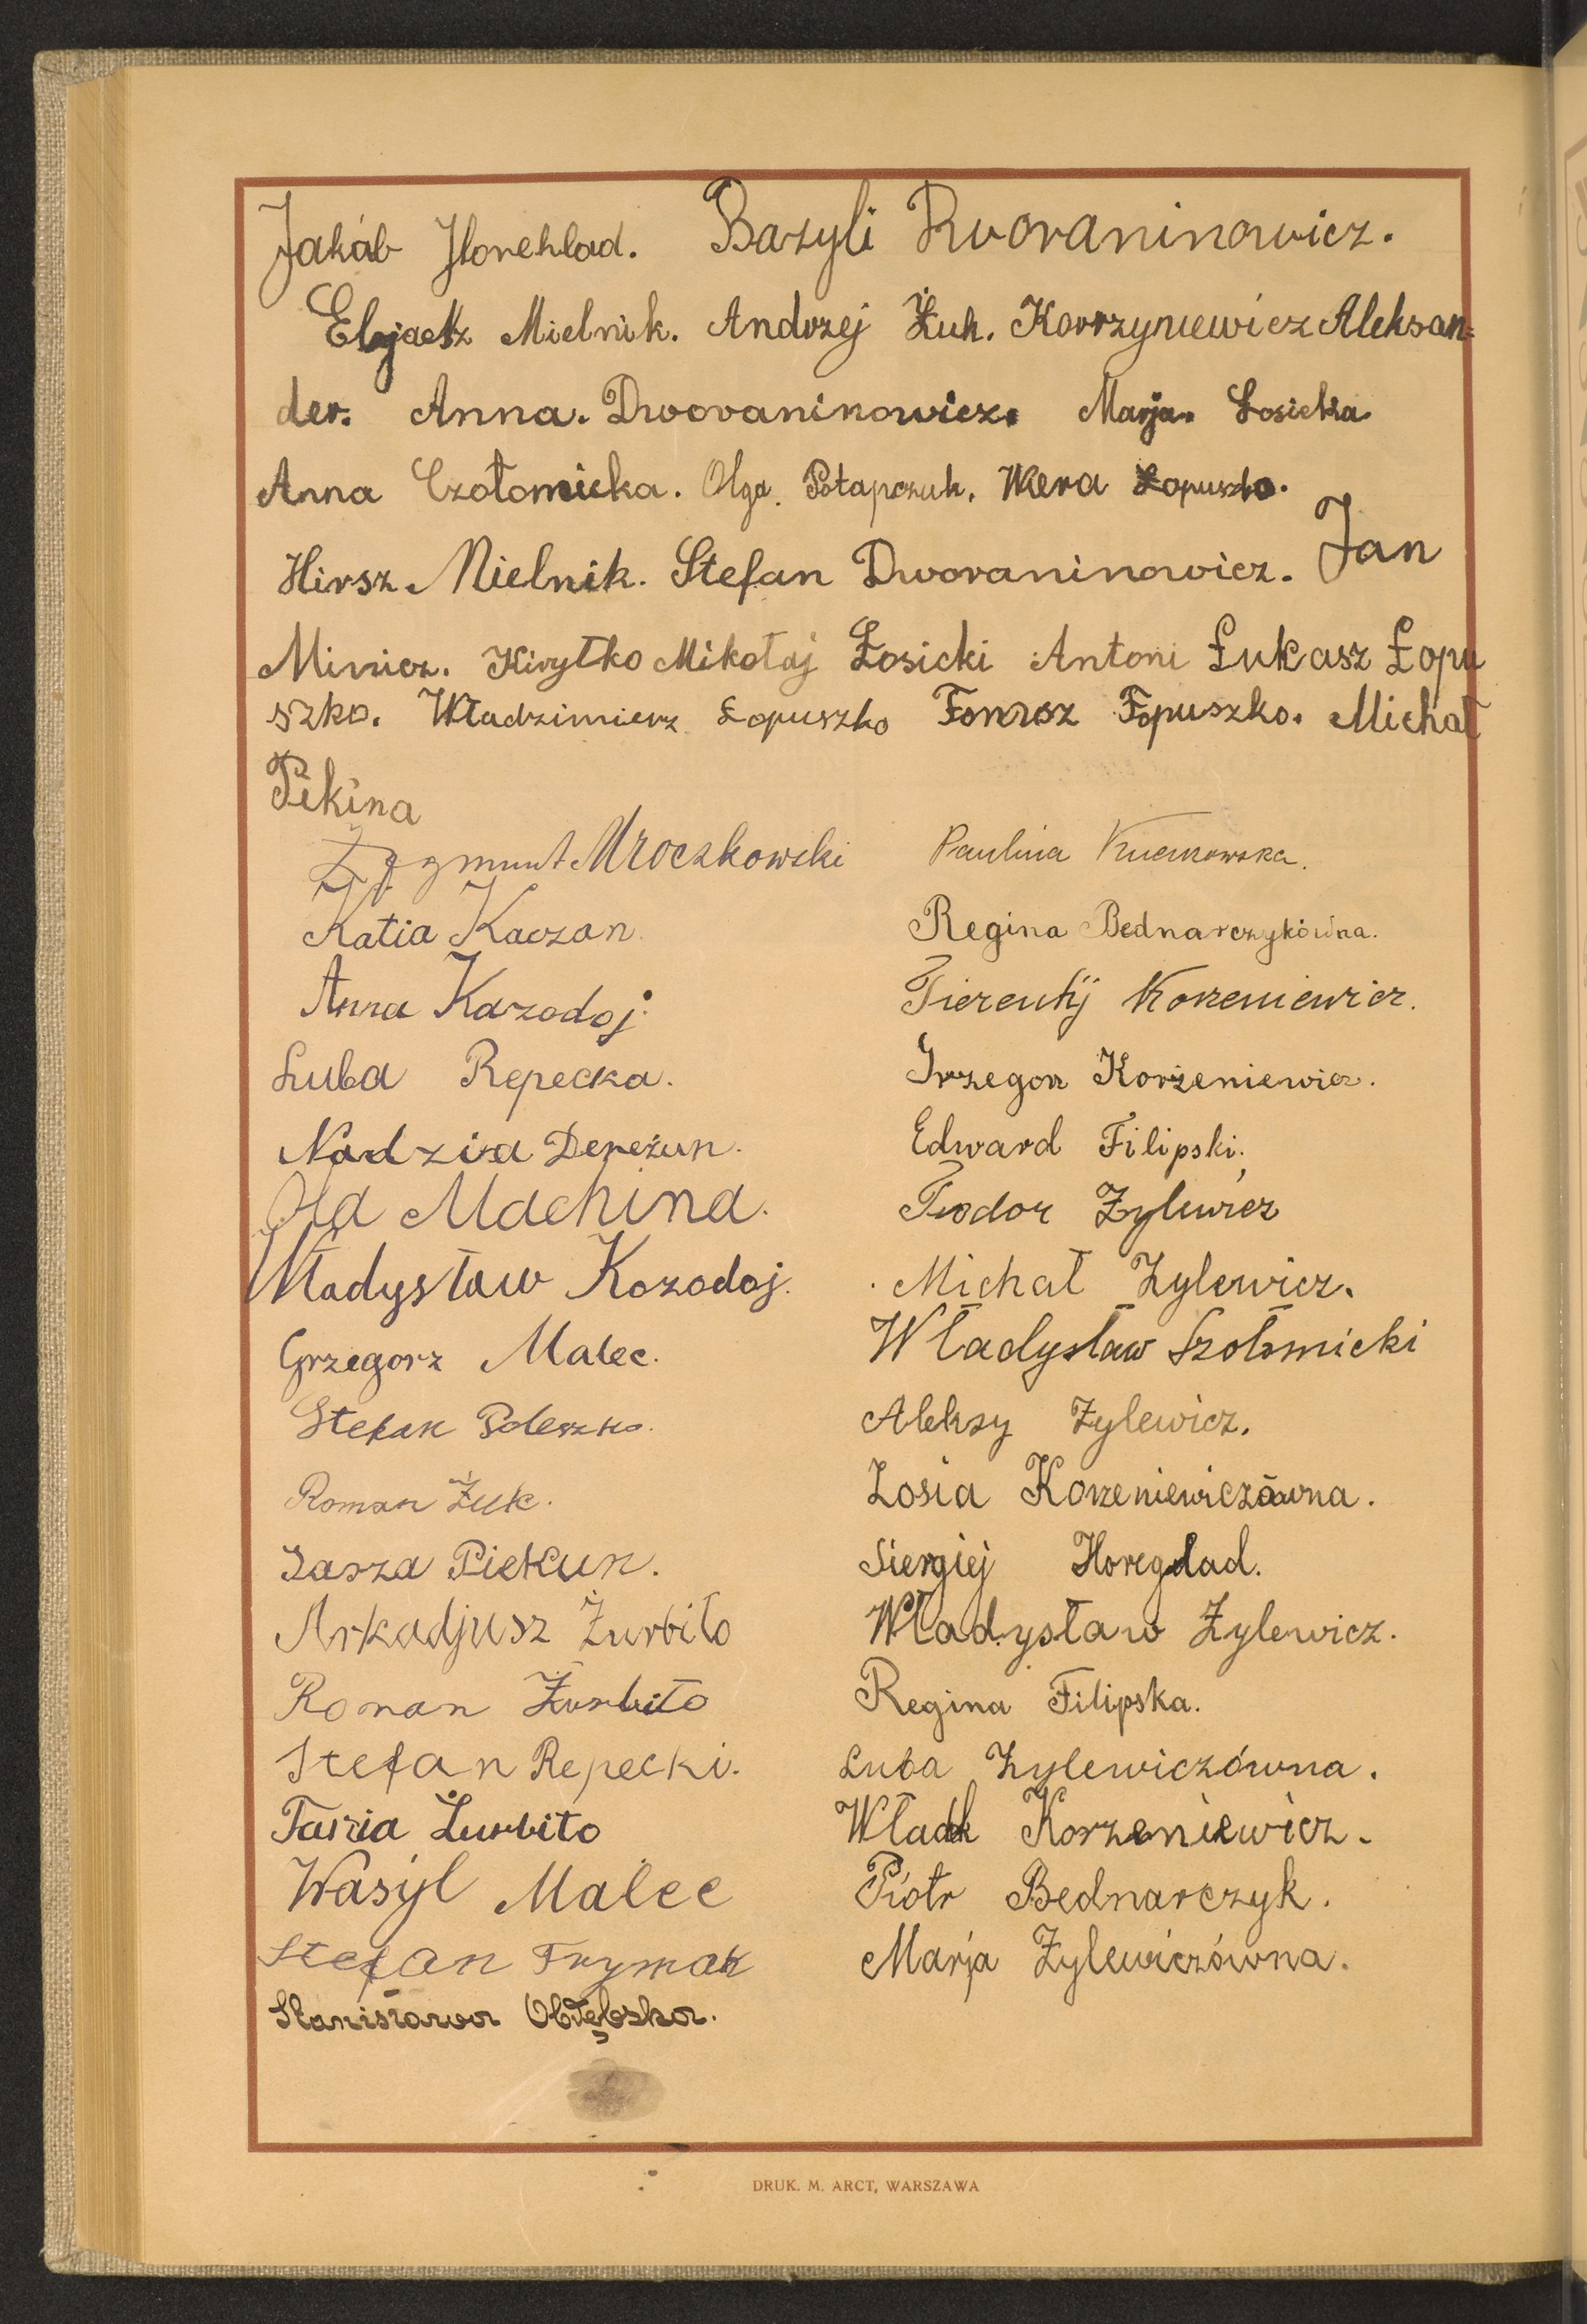 Jakób Horehlad. Bazyli Dworaninowicz.
Eljasz Mielnik. Andrzej Żuk. Korrzyniewicz Aleksan=
der. Anna. Dworaninowicz. Marja. Łosicka
Anna Czołomicka. Olga. Potapczuk. Wiera Łopuszko.
Hirsz Mielnik. Stefan Dworaninowicz. Jan
Minicz. Kiryłko Mikołaj Łosicki Antoni Łukasz Łopu
szko. Władzimierz Łopuszko Tomasz Łopuszko. Michał
Pikina
Zygmunt Mroczkowski
Katia Kaczan.
Anna Kazodoj.
Luba Repecka.
Nadzia Dereżun.
Ola Machina.
Władysław Kozodoj.
Grzegorz Malec.
Stefan Poleszko.
Roman Żuk.
Sasza Piekun.
Arkadjusz Żurbiło
Roman Żurbiło
Stefan Repecki.
Tania Żurbiło
Wasyl Malec
Stefan Trymak
Stanisława Obłębska.
Paulina
Regina Bednarczykówna.
Tierentij Korzeniewicz.
Grzegorz Korzeniewicz.
Edward Filipski.
Teodor Żylewicz
Michał Zylewicz.
Władysław Szołomicki
Aleksy Zylewicz.
Zosia Korzeniewiczówna.
Siergiej Horeglad.
Władysław Zylewicz.
Regina Filipska.
Luba Zylewiczówna.
Władk Korzeniewicz.
Piotr Bednarczyk.
Marja Zylewiczówna.
DRUK. M. ARCT, WARSZAWA